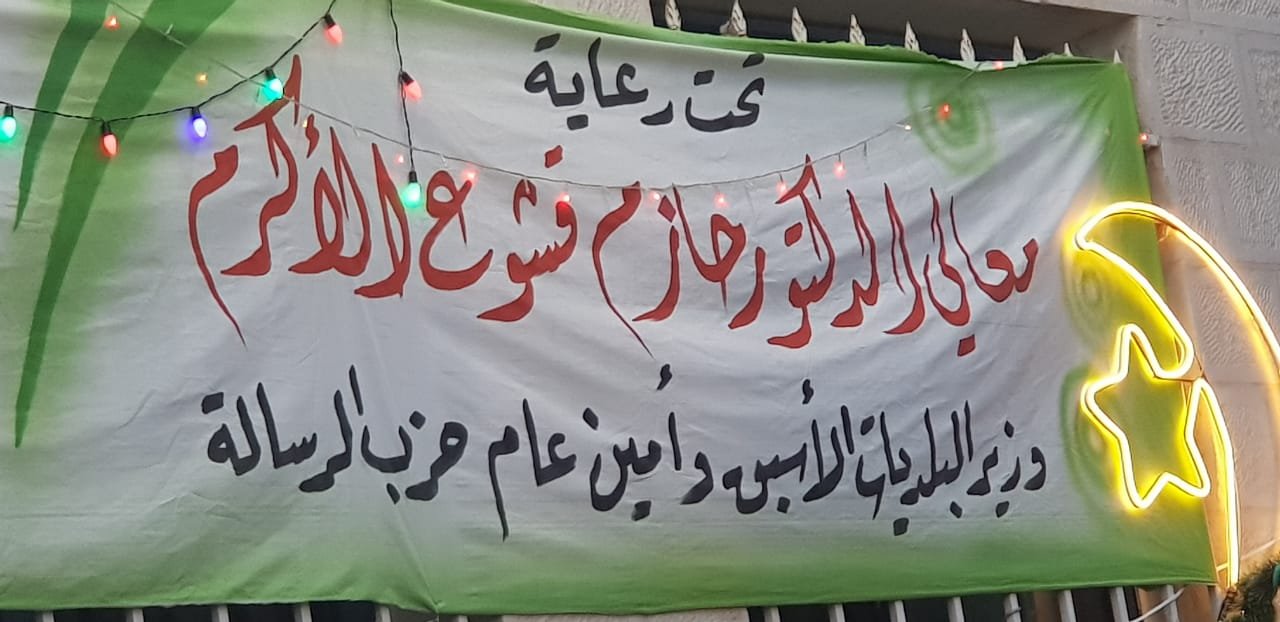 تحت رعاية
معالي الدكتور حازم قشوع الأكرم
وزير البلديات الأسبق وأمين عام حزب الرسالة